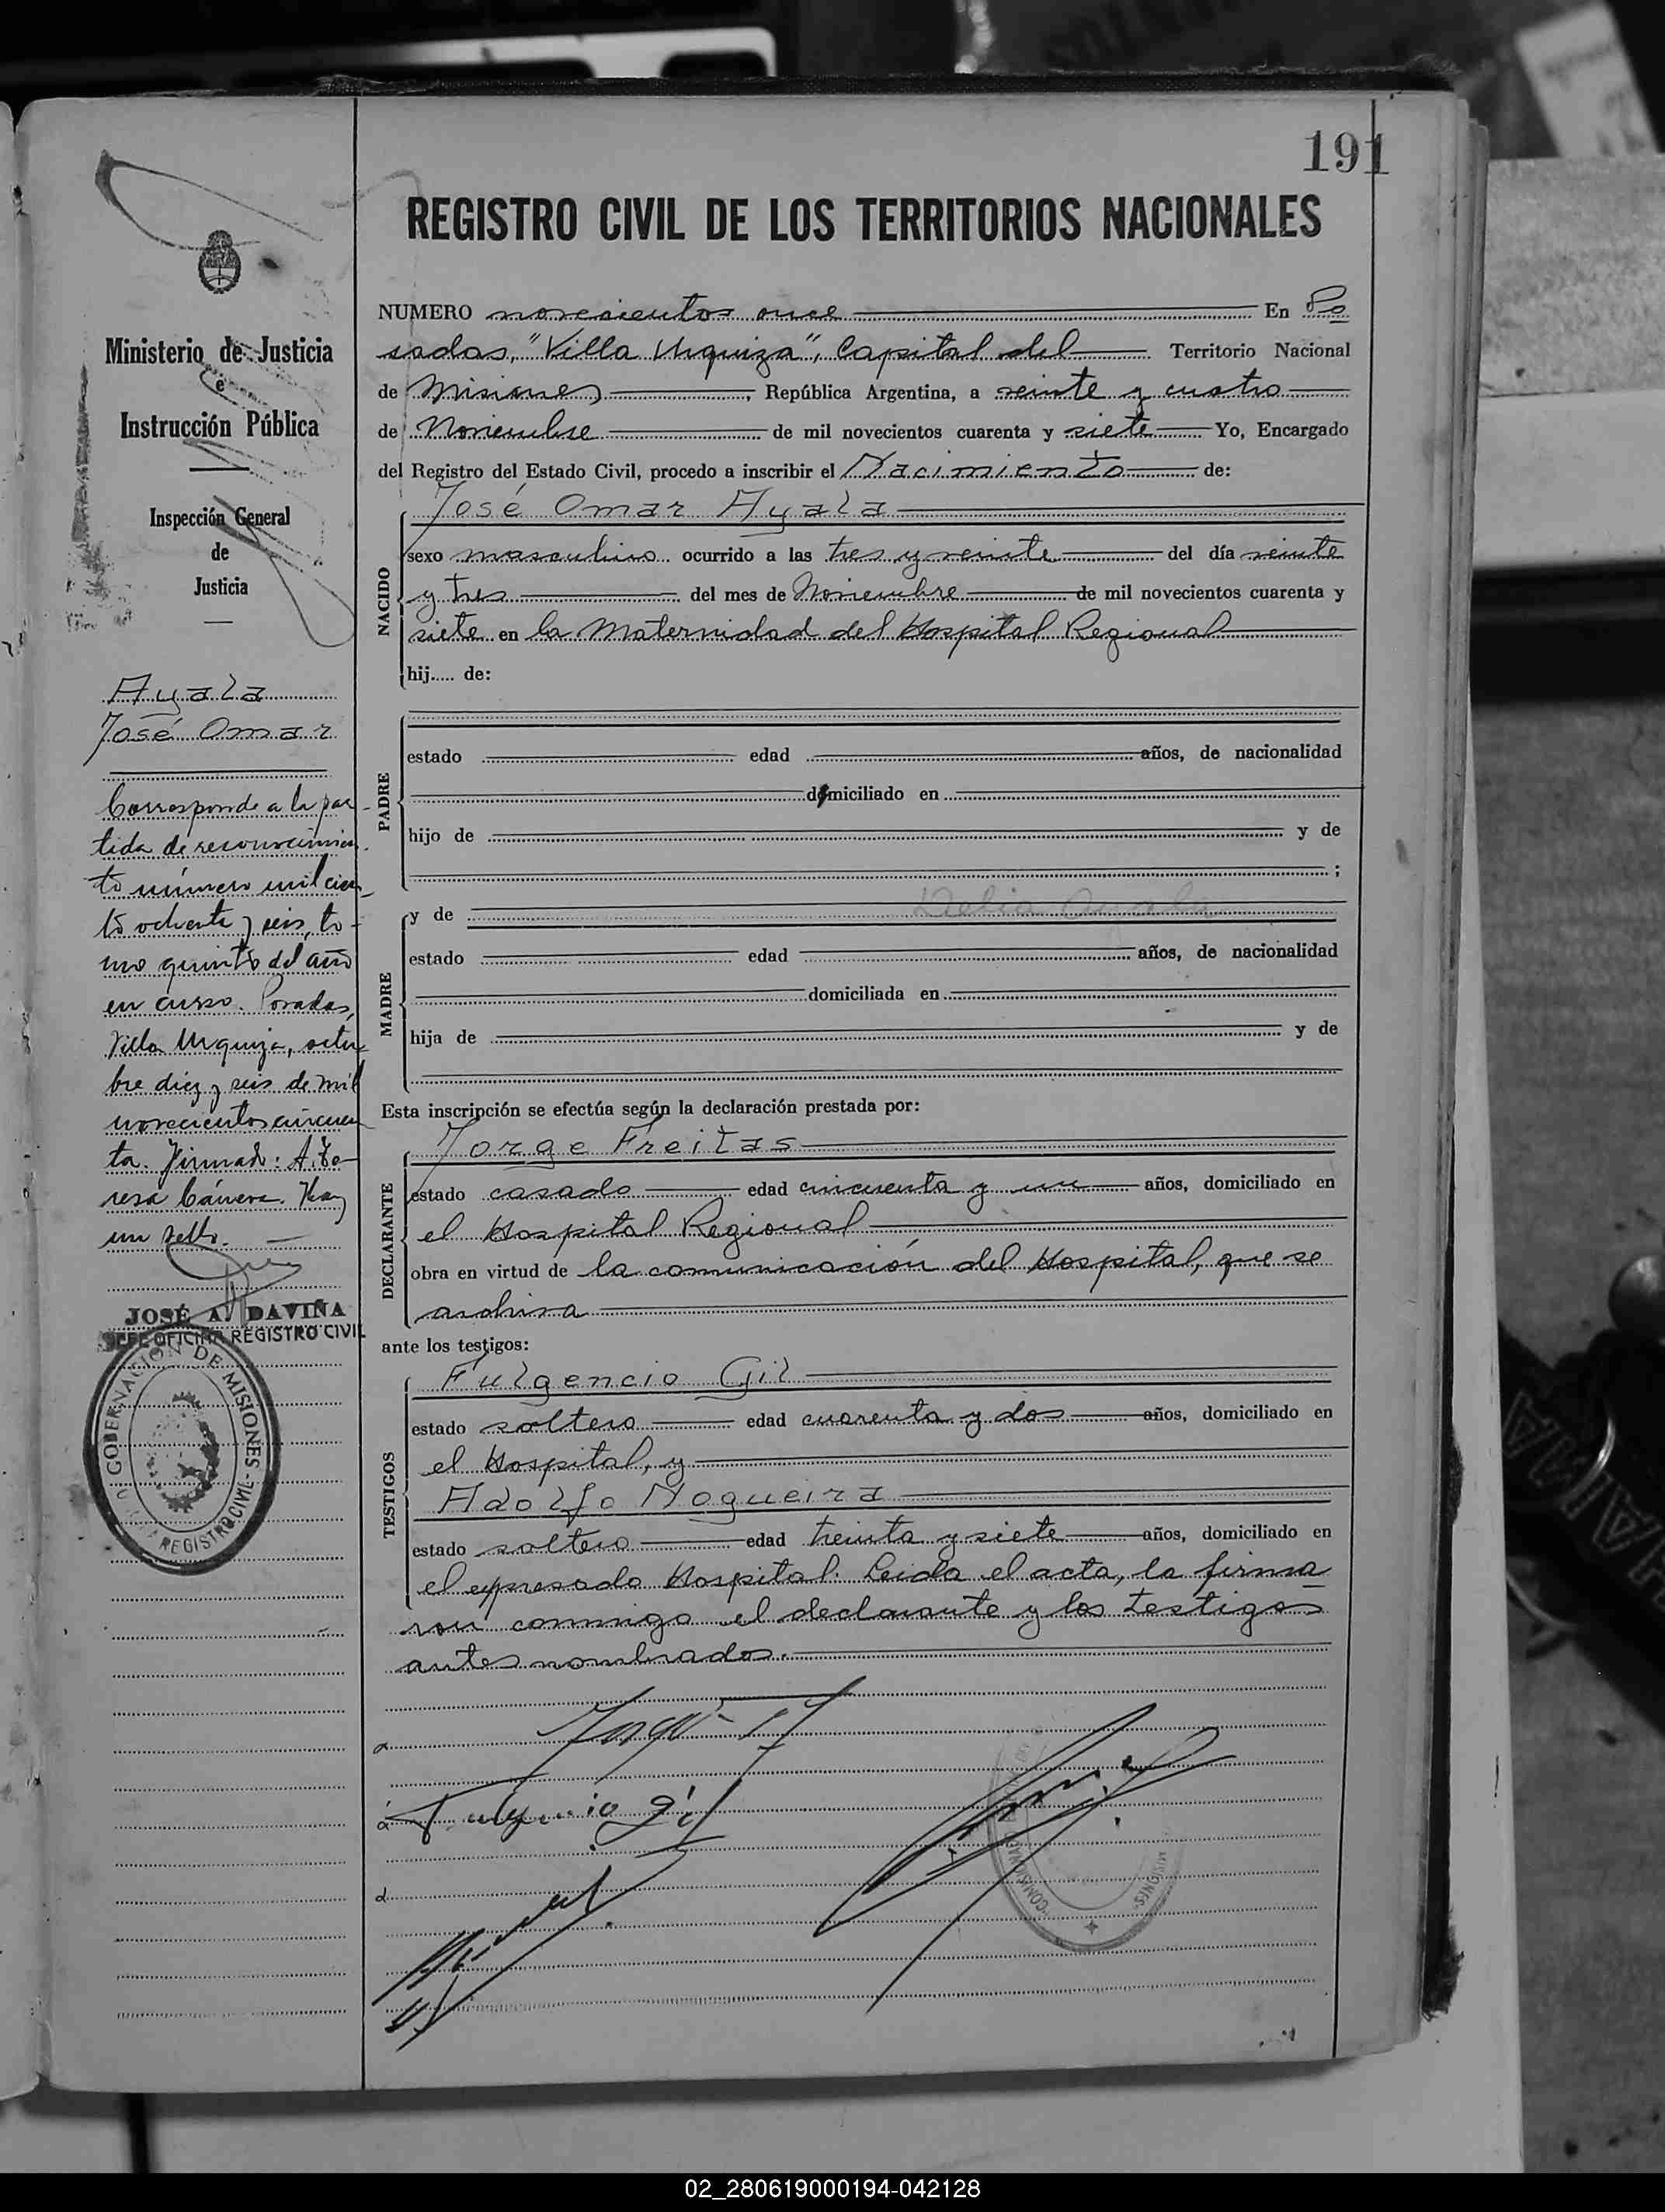 191
REGISTRO CIVIL DE LOS TERRITORIOS NACIONALES
Ministerio de Justicia
é
Instrucción Pública
Inspección General
de
Justicia
Ayala
José Omar
Corresponde a la par-
tida de reconocimien-
to número mil cien-
to ochenta y seis, to-
mo quinto del año
en curso. Posadas,
Villa Urquiza, octu-
bre diez y seis de mil
novecientos cincuen-
ta. Firmado: A. Te-
resa Cánera. Hay
un sello.
JOSÉ A. DAVIÑA
JEFE OFICINA REGISTRO CIVIL
GOBERNACION DE MISIONES - REGISTRO CIVIL
NUMERO novecientos once En Po
sadas, "Villa Urquiza", Capital del Territorio Nacional
de Misiones, República Argentina, a veinte y cuatro
de Noviembre de mil novecientos cuarenta y siete Yo, Encargado
del Registro del Estado Civil, procedo a inscribir el Nacimiento de:
NACIDO
José Omar Ayala
sexo masculino ocurrido a las tres y veinte del día veinte
y tres del mes de Noviembre de mil novecientos cuarenta y
siete en la Maternidad del Hospital Regional
hij..... de:
PADRE
estado edad años, de nacionalidad
domiciliado en
hijo de y de
;
MADRE
y de Delia Ayala
estado edad años, de nacionalidad
domiciliada en
hija de y de
Esta inscripción se efectúa según la declaración prestada por:
DECLARANTE
Jorge Freitas
estado casado edad cincuenta y un años, domiciliado en
el Hospital Regional
obra en virtud de la comunicación del Hospital, que se
archiva
ante los testigos:
TESTIGOS
Fulgencio Gil
estado soltero edad cuarenta y dos años, domiciliado en
el Hospital, y
Adolfo Nogueira
estado soltero edad treinta y siete años, domiciliado en
el expresado Hospital. Leída el acta, la firma
ron conmigo el declarante y los testigos
antes nombrados.
Fulgencio Gil
MISIONES
02_280619000194-042128